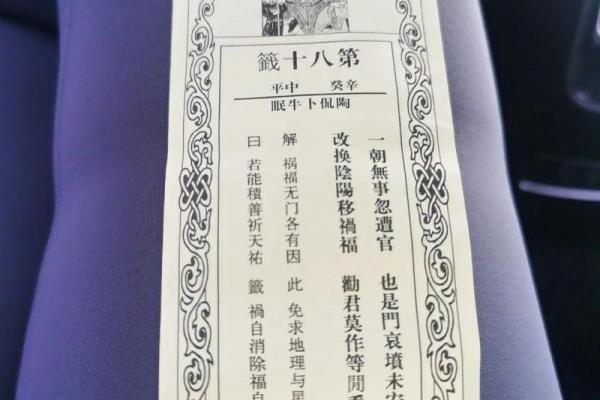 第八十籤
辛癸 中平
陶侃卜牛眠
一朝無事忽遭官 也是門哀墳未安
改換陰陽移禍福 勸君莫作等閒看
解 祸福无门各有因 此 免求地理与星
曰 若能積善祈天祐 籤 禍自消除福自